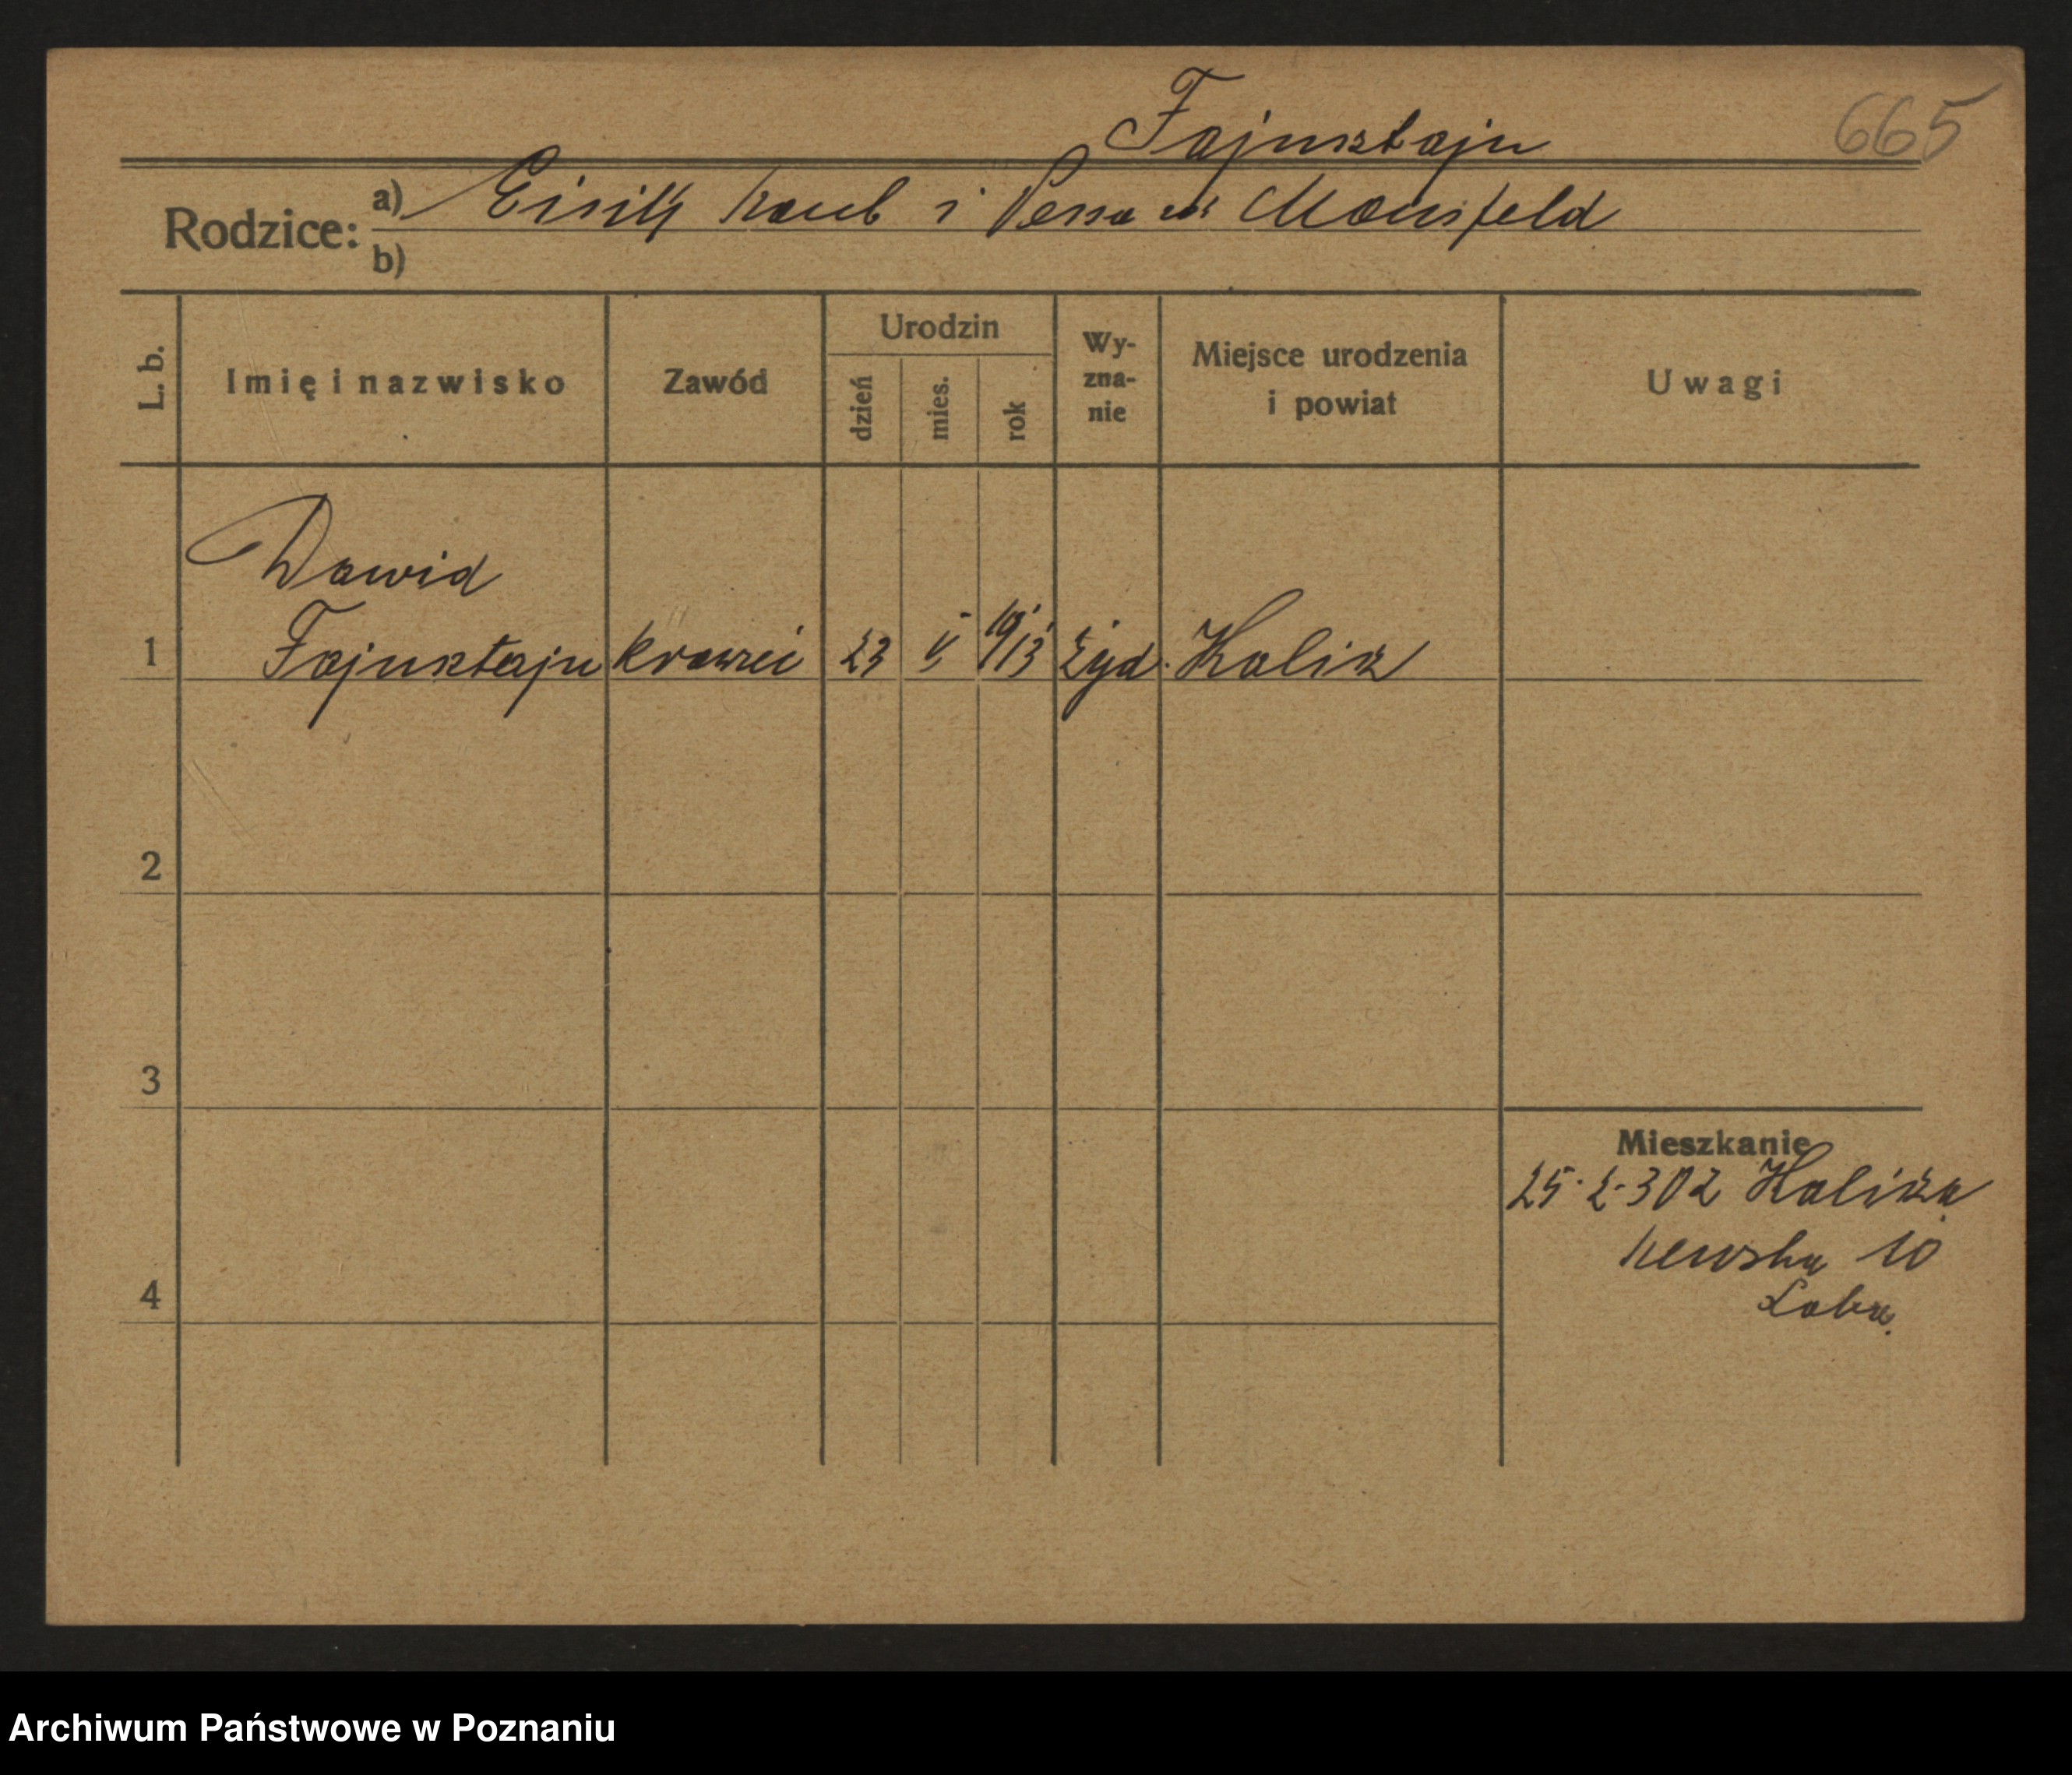 Fajnsztajn 665
Rodzice: a) Eisik i Pessa Mansfeld
b)
L. b. Imię i nazwisko Zawód Urodzin dzień mies. rok Wy-zna-nie Miejsce urodzenia i powiat Uwagi
Dawid
1 Fajnsztajn krawiec 23 V 1913 żyd. Kalisz
2
3
Mieszkanie
25.2.302 Kalisza
10
4
Archiwum Państwowe w Poznaniu